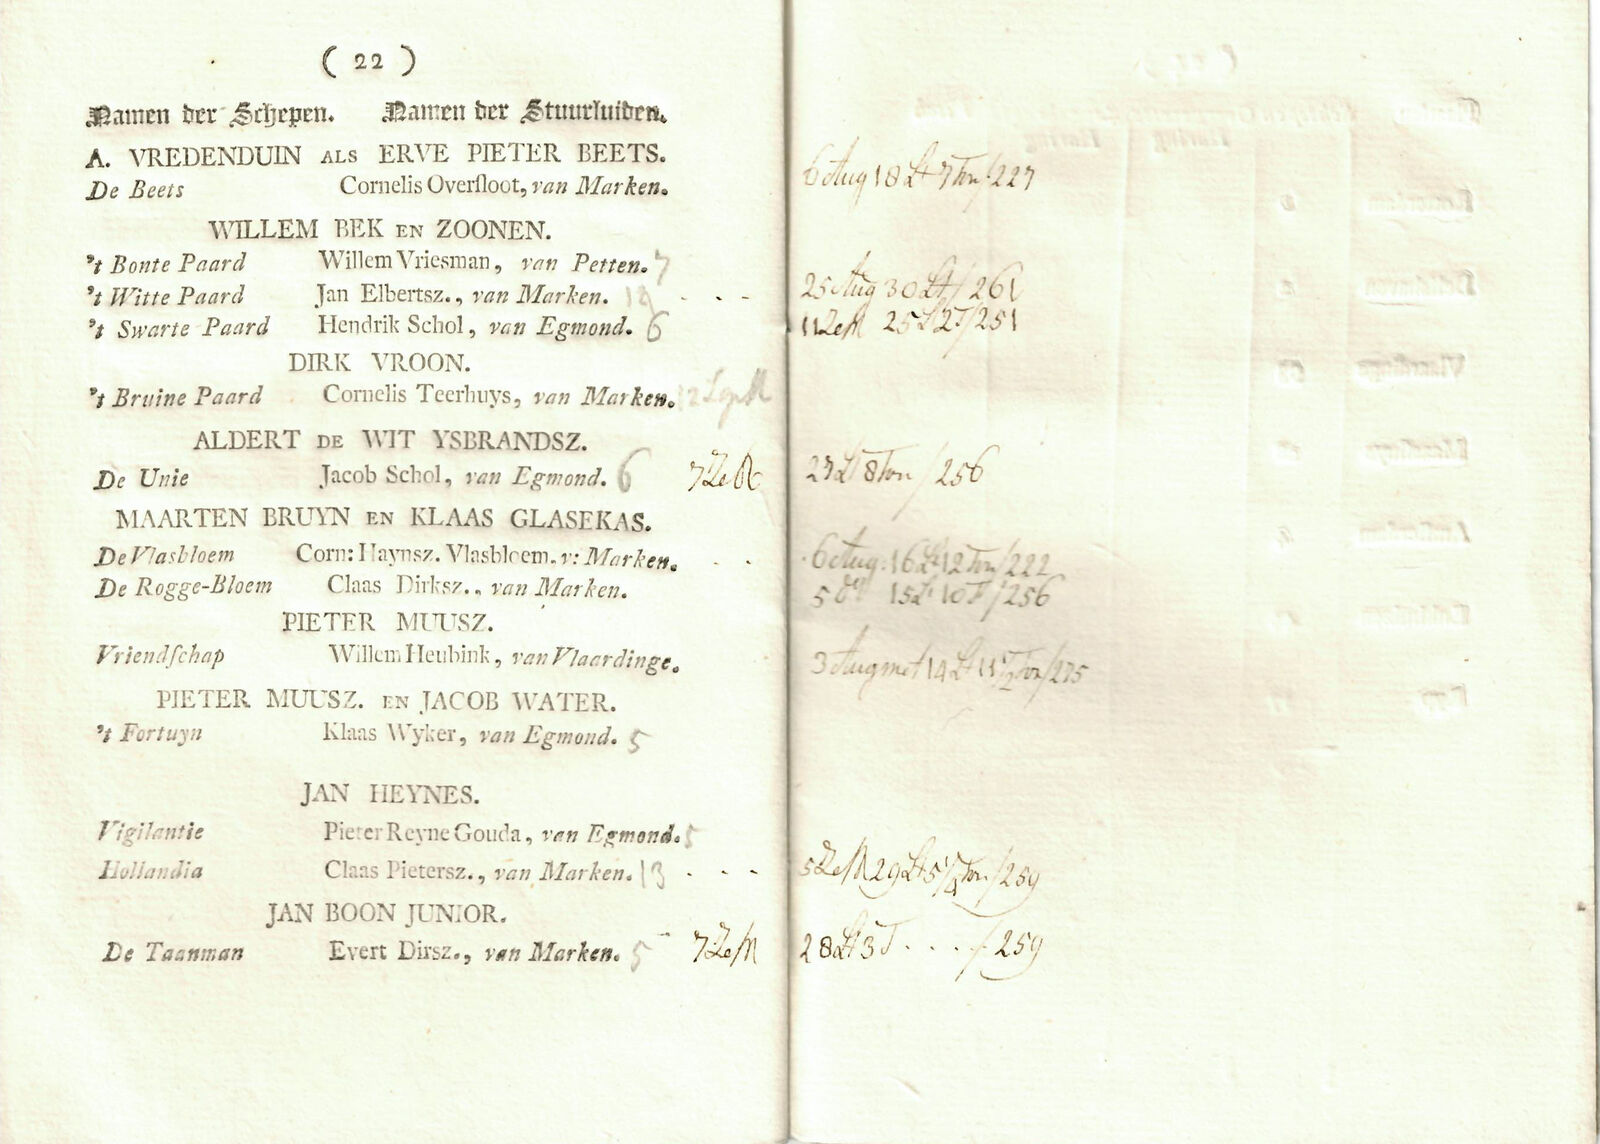 ( 22 )
Namen der Schepen. Namen der Stuurluiden.
A. VREDENDUIN ALS ERVE PIETER BEETS.
De Beets Cornelis Overſloot, van Marken. 6 Aug 18 Lt 7 Ton / 227
WILLEM BEK EN ZOONEN.
't Bonte Paard Willem Vriesman, van Petten. 7
't Witte Paard Jan Elbertsz., van Marken. - - - 25 Aug 30 Lt / 261
't Swarte Paard Hendrik Schol, van Egmond. 6 11 ZeM 25 L 2 T / 251
DIRK VROON.
't Bruine Paard Cornelis Teerhuys, van Marken. 12
ALDERT DE WIT YSBRANDSZ.
De Unie Jacob Schol, van Egmond. 6 7 ZeM 27 Lt 8 Ton / 256
MAARTEN BRUYN EN KLAAS GLASEKAS.
De Vlasbloem Corn: Haynsz. Vlasbloem. v: Marken. - - 6 Aug: 16 Lt 12 Ton / 222
De Rogge-Bloem Claas Dirksz., van Marken. 5 15 L 10 T / 256
PIETER MUUSZ.
Vriendſchap Willem Heubink, van Vlaardinge. 3 Aug met 14 Lt 11 1/2 Ton / 275
PIETER MUUSZ. EN JACOB WATER.
't Fortuyn Klaas Wyker, van Egmond. 5
JAN HEYNES.
Vigilantie Pieter Reyne Gouda, van Egmond. 5
Hollandia Claas Pietersz., van Marken. 13 - - - 5 ZeM 29 Lt 5 1/4 Ton / 259
JAN BOON JUNIOR.
De Taanman Evert Dirsz., van Marken. 5 7 ZeM 28 Lt 3 T . . . . / 259